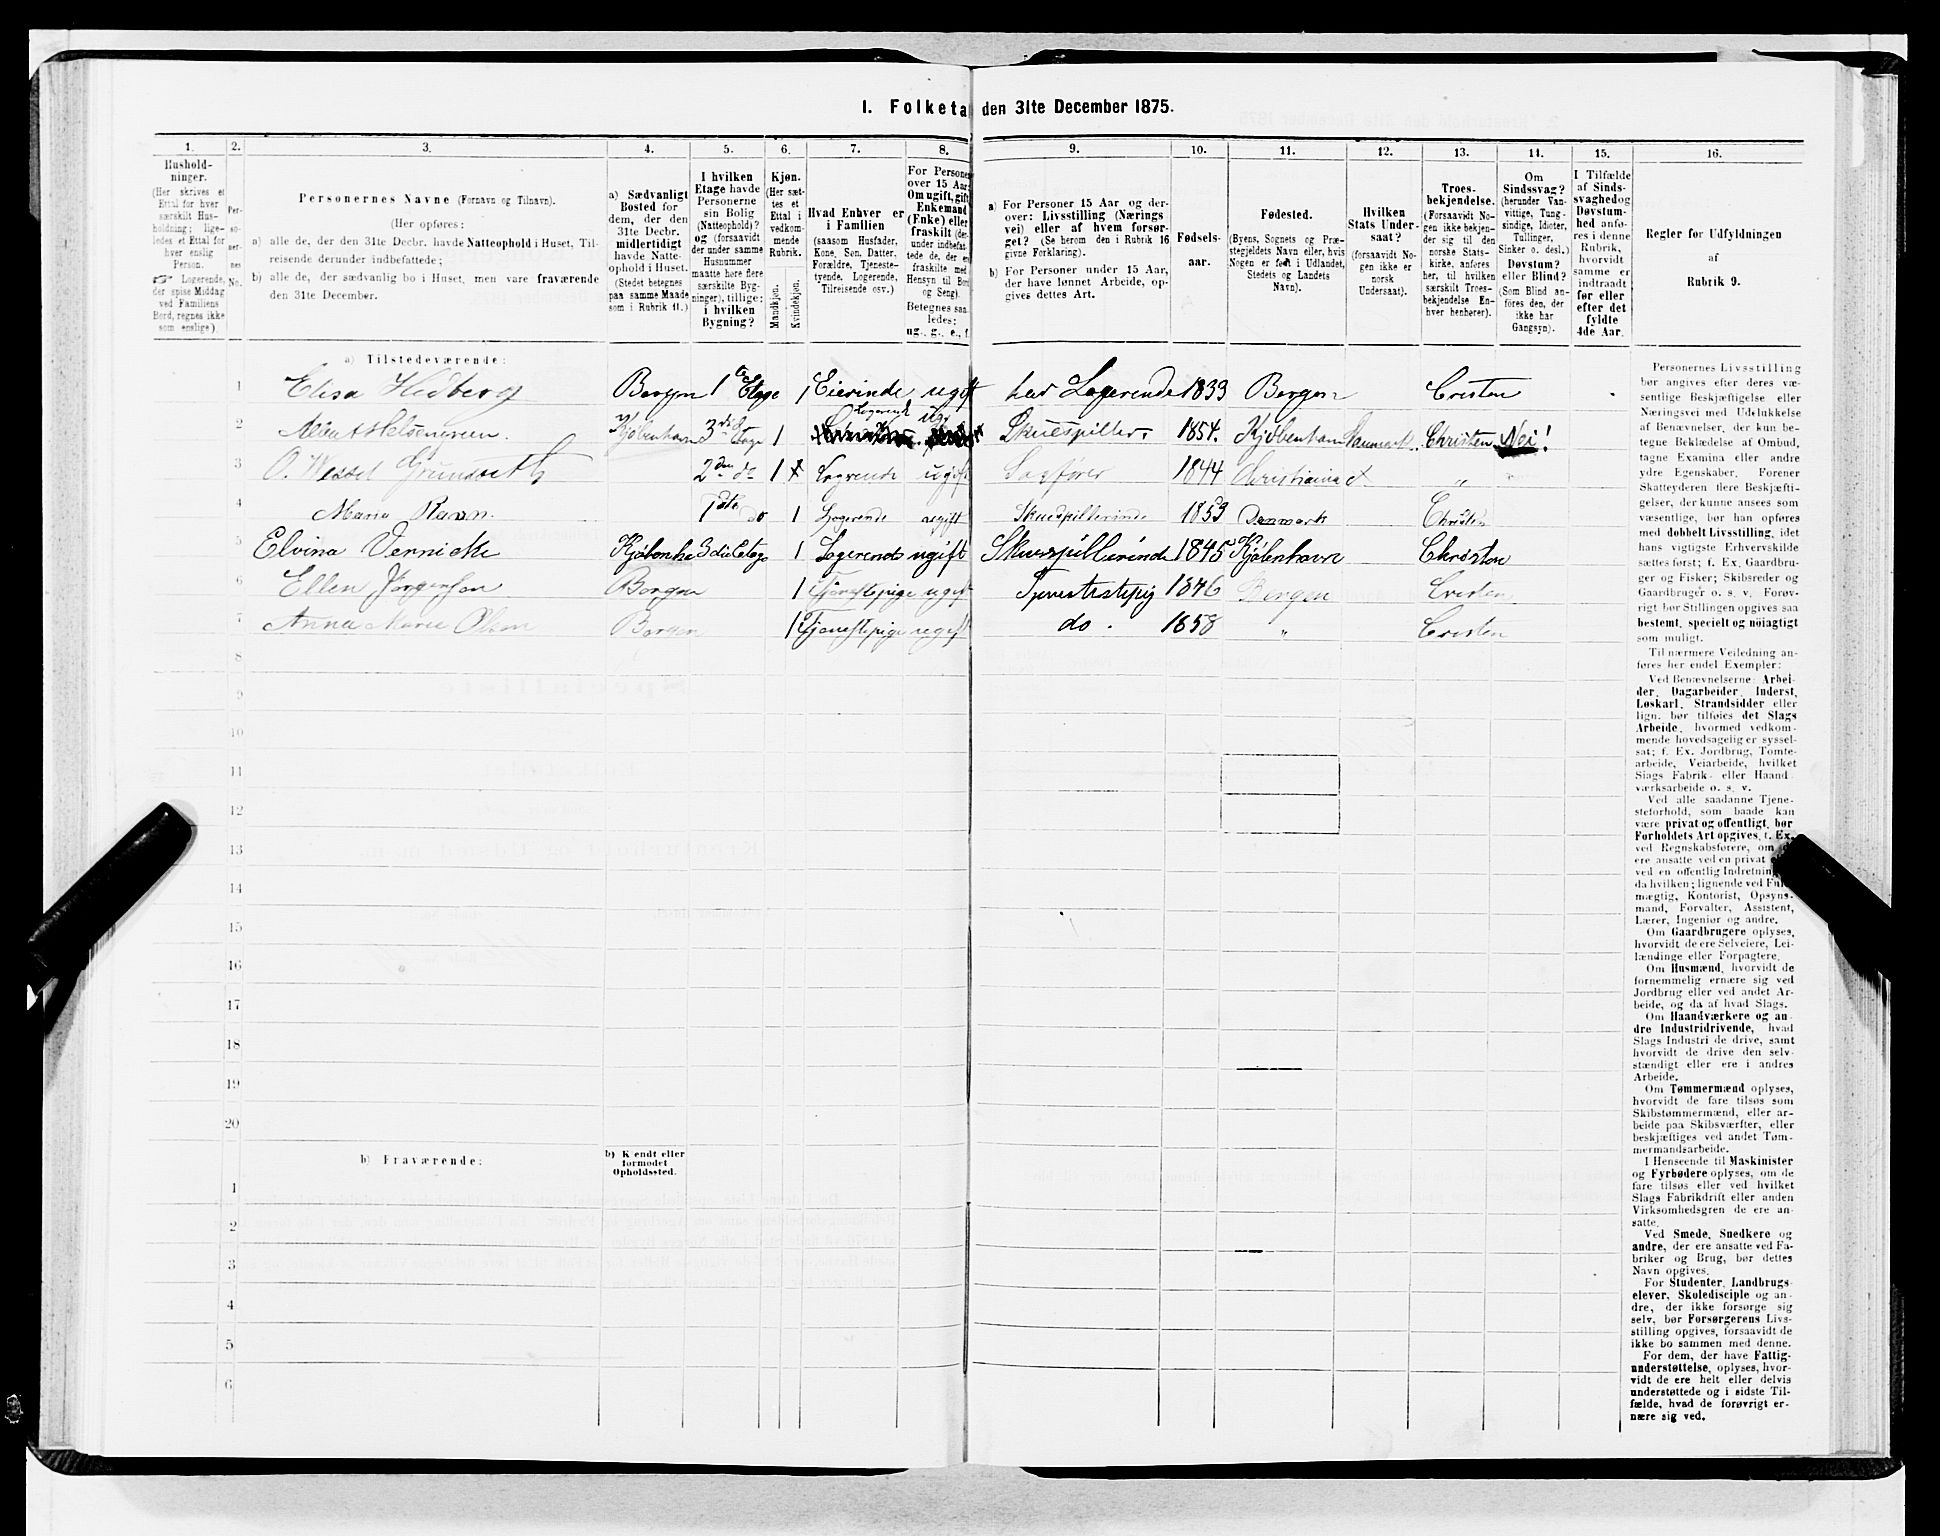 I. Folketa den 31te December 1875.
1.
2.
3.
4.
5.
6.
7.
8.
9.
10.
11.
12.
13.
14.
15.
16.
Hushold-
ninger.
(Her skrives et
Ettal for hver
særskilt Hus-
holdning; lige-
ledes et Ettal for
hver enslig
Person.
☞ Logerende,
der spise Middag
ved Familiens
Bord, regnes ikke
som enslige)
Per-
so-
ner-
nes
No.
Personernes Navne (Fornavn og Tilnavn).
(Her opføres:
a) alle de, der den 31te Decbr. havde Natteophold i Huset, Til-
reisende derunder indbefattede;
b) alle de, der sædvanlig bo i Huset, men vare fraværende
den 31te December.
a) Sædvanligt
Bosted for
dem, der den
31te Decbr.
midlertidigt
havde Natte-
ophold i Huset.
(Stedet betegnes
paa samme Maade
som i Rubrik 11.)
I hvilken
Etage havde
Personerne
sin Bolig
(Natteophold)?
og (forsaavidt
der under samme
Husnummer
maatte høre flere
særskilte Byg-
ninger), tillige:
i hvilken
Bygning?
Kjøn.
(Her sæt-
tes et
Ettal i
vedkom-
mende
Rubrik.
Mandkjøn.
Kvindekjøn.
Hvad Enhver er
i Familien
(saasom Husfader,
Kone, Søn, Datter,
Forældre, Tjeneste-
tyende, Logerende,
Tilreisende osv.)
For Persone
over 15 Aar
Om ugift, gift,
Enkemand
(Enke) eller
fraskilt (der-
under indbefat-
tede de, der e
fraskilte med
Hensyn til Bord
og Seng).
Betegnes saa
ledes:
ug., g., e., f.
a) For Personer 15 Aar og der-
over: Livsstilling (Nærings
vei) eller af hvem forsør-
get? (Se herom den i Rubrik 16
givne Forklaring).
b) For Personer under 15 Aar,
der have lønnet Arbeide, op-
gives dettes Art.
Fødsels-
aar.
Fødested.
(Byens, Sognets og Præ-
stegjeldets Navn eller, hvis
Nogen er født i Udlandet,
Stedets og Landets
Navn).
Hvilken
Stats Under-
saat?
(forsaavidt No-
gen ikke er
norsk
Undersaat).
Troes-
bekjendelse.
(Forsaavidt No-
gen ikke bekjen-
der sig til den
norske Stats-
kirke, anføres
her, til hvilken
særskilt Troes-
bekjendelse En-
hver henhører).
Om
Sindssvag?
(herunder Van-
vittige, Tung-
sindige, Idioter,
Tullinger,
Sinker o. desl.)
Døvstum?
eller Blind?
(Som Blind an-
føres den, der
ikke har
Gangsyn).
I Tilfælde
af Sinds-
svaghed og
Døvstum-
hed anfø-
res i denne
Rubrik,
hvorvidt
samme er
indtraadt
før eller
efter det
fyldte
4de Aar.
Regler for Udfyldningen
af
Rubrik 9.
a) Tilstedeværende:
1 Elisa Hedberg Bergen 1te Etage 1 Eierinde ugift har Logerende 1833 Bergen Cristen
2 Kjøbenhavn 3die Etage 1 Logerende ug. Skuespiller 1854. Kjøbenhavn Danmark. Christen Nei!
3 O. Wessel 2den do 1 Logerende ugift Sagfører 1844 Christiania "
4 Maria Ravn. 1ste do 1 Logerende ugift Skuespillerinde 1853 Danmark Christen
5 Elvina Kjøbenha 3die Etage 1 Logerende ugift Skuespillerinde 1845 Kjøbenhavn Christen
6 Ellen Jørgensen Bergen 1 Tjenestepige ugift 1846 Bergen Cristen
7 Anna Marie Olsen Bergen 1 Tjenestepige ugift do. 1858 " Cristen
8
9
10
11
12
13
14
15
16
17
18
19
20
b) Fraværende:
b) Kjendt eller
formodet
Opholdssted.
1
2
3
4
5
6
Personernes Livsstilling
bør angives efter deres væ-
sentlige Beskjæftigelse eller
Næringsvei med Udelukkelse
af Benævnelser, der kun be-
tegne Beklædelse af Ombud,
tagne Examina eller andre
ydre Egenskaber. Forener
Skatteyderen flere Beskjæfti-
gelser, der kunne ansees som
væsentlige, bør han opføres
med dobbelt Livsstilling, idet
hans vigtigste Erhvervskilde
sættes først; f. Ex. Gaardbru-
ger og Fisker; Skibsreder og
Gaardbruger o. s. v. Forøv-
rigt bør Stillingen opgives saa
bestemt, specielt og nøiagtigt
som muligt.
Til nærmere Veiledning an-
føres her endel Exempler:
Ved Benævnelserne: Arbei-
der, Dagarbeider, Inderst,
Løskarl, Strandsidder eller
lign. bør tilføies det Slags
Arbeide, hvormed vedkom-
mende hovedsagelig er syssel-
sat; f. Ex. Jordbrug, Tomte-
arbeide, Veiarbeide, hvilket
Slags Fabrik- eller Haand-
værksarbeide o. s. v.
Ved alle saadanne Tjene-
steforhold, som baade kan
være privat og offentligt, bør
Forholdets Art opgives, t. Ex.
ved Regnskabsførere, om d
ere ansatte ved en privat e
ved en offentlig Indretnin
da hvilken; lignende ved Ful
mægtig, Kontorist, Opsyns-
mand, Forvalter, Assistent,
Lærer, Ingeniør og andre.
Om Gaardbrugere oplyses,
hvorvidt de ere Selveiere, Lei-
lændinge eller Forpagtere.
Om Husmænd, hvorvidt de
fornemmelig ernære sig ved
Jordbrug eller ved andet Ar-
beide, og da af hvad Slags.
Om Haandværkere og an-
dre Industridrivende, hvad
Slags Industri de drive, samt
hvorvidt de drive den selv-
stændigt eller ere i andres
Arbeide.
Om Tømmermænd oplyses,
hvorvidt de fare tilsøs som
Skibstømmermænd, eller ar-
beide paa Skibsværfter, eller
beskjæftiges ved andet Tøm-
mermandsarbeide.
I Henseende til Maskinister
og Fyrbødere oplyses, om de
fare tilsøs eller ved hvilket
Slags Fabrikdrift eller anden
Virksomhedsgren de ere an-
satte.
Ved Smede, Snedkere og
andre, der ere ansatte ved Fa-
briker og Brug, bør dettes
Navn opgives.
For Studenter, Landbrugs-
elever, Skoledisciple og an-
dre, der ikke forsørge sig
selv, bør Forsørgerens Livs-
stilling opgives, forsaavidt de
ikke bo sammen med denne.
For dem, der have Fattig-
understøttelse, oplyses, hvor-
vidt de ere helt eller delvis
understøttede og i sidste Til-
fælde, hvad de forøvrigt er-
nære sig ved.